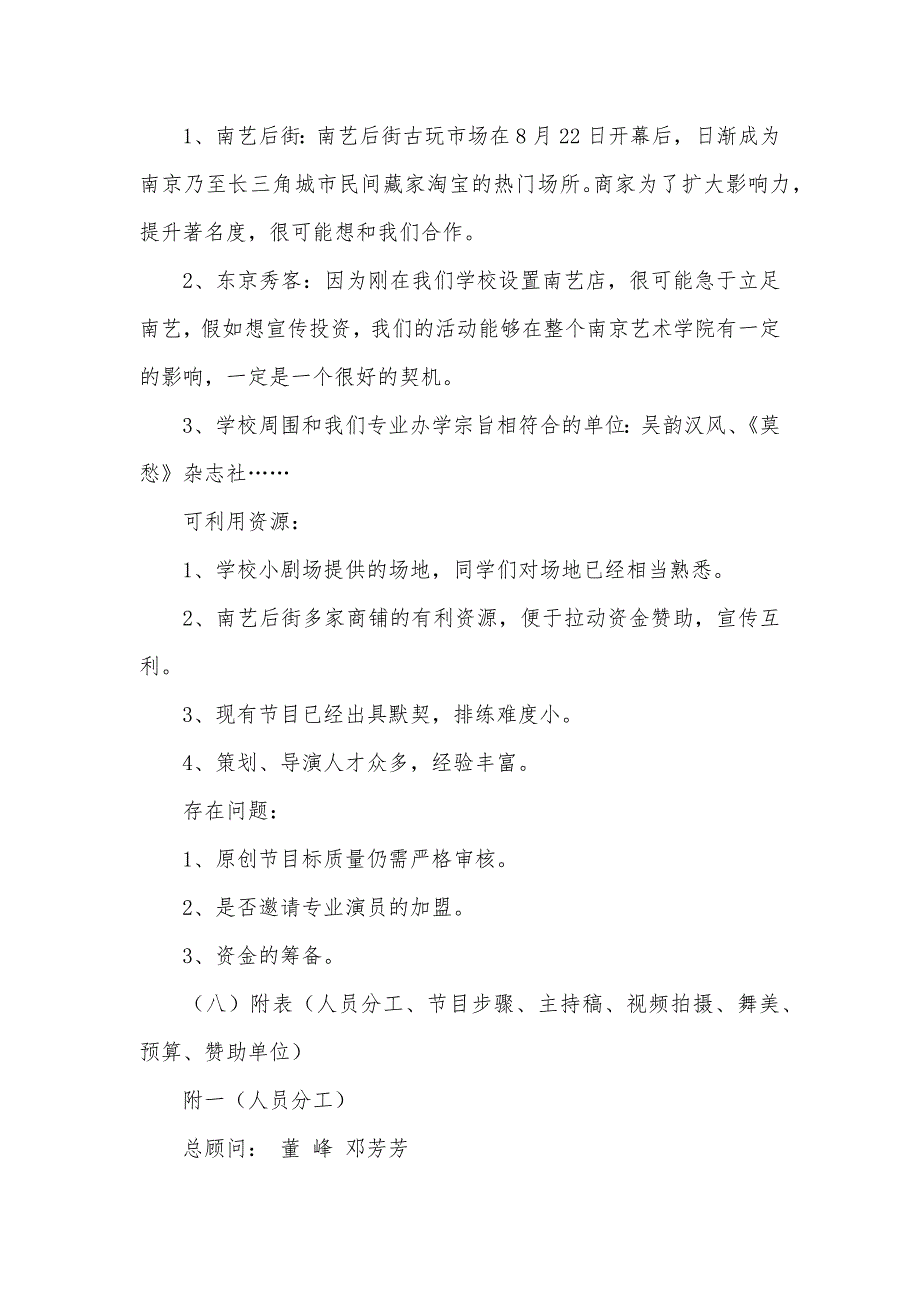 1、南艺后街：南艺后街古玩市场在 8 月 22 日开幕后，日渐成为
南京乃至长三角城市民间藏家淘宝的热门场所。商家为了扩大影响力，
提升著名度，很可能想和我们合作。
2、东京秀客：因为刚在我们学校设置南艺店，很可能急于立足
南艺，假如想宣传投资，我们的活动能够在整个南京艺术学院有一定
的影响，一定是一个很好的契机。
3、学校周围和我们专业办学宗旨相符合的单位：吴韵汉风、《莫
愁》杂志社……
可利用资源：
1、学校小剧场提供的场地，同学们对场地已经相当熟悉。
2、南艺后街多家商铺的有利资源，便于拉动资金赞助，宣传互
利。
3、现有节目已经出具默契，排练难度小。
4、策划、导演人才众多，经验丰富。
存在问题：
1、原创节目标质量仍需严格审核。
2、是否邀请专业演员的加盟。
3、资金的筹备。
（八）附表（人员分工、节目步骤、主持稿、视频拍摄、舞美、
预算、赞助单位）
附一（人员分工）
总顾问： 董 峰 邓芳芳